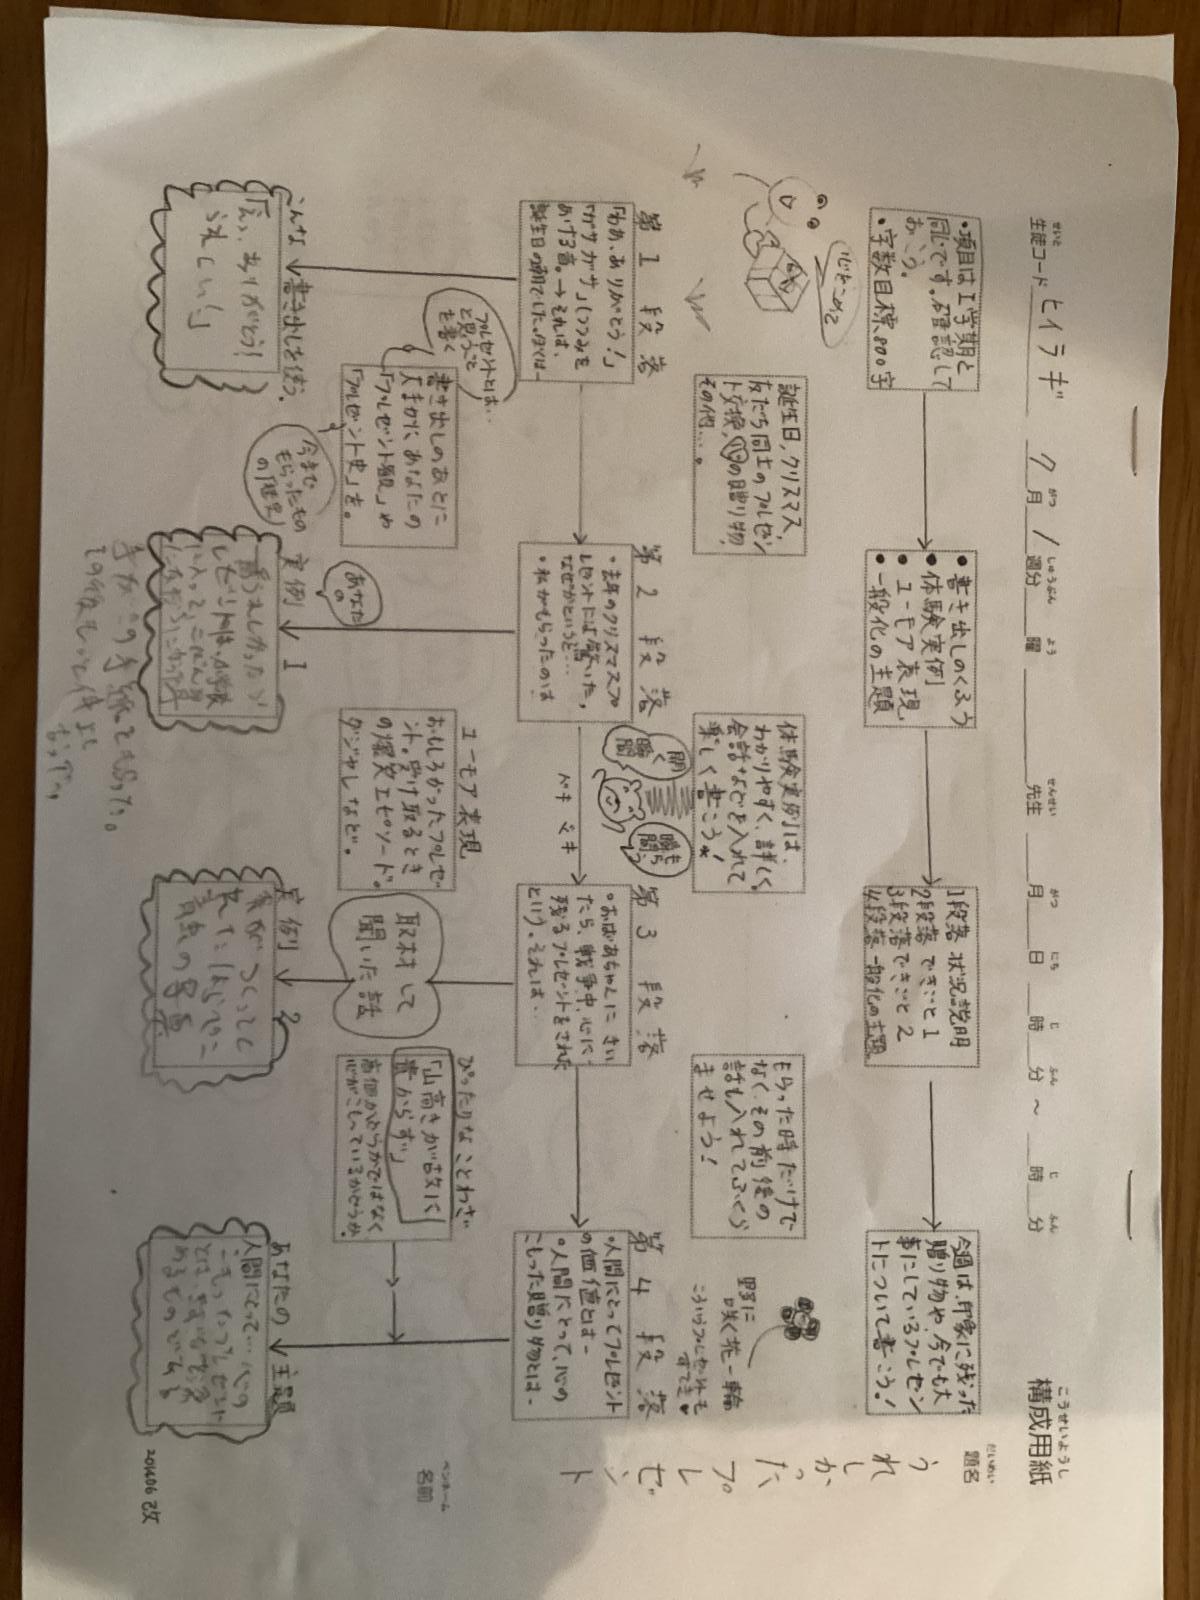 構成用紙
こうせいようし
生徒コード ヒイラギ 9月1週分 曜 先生 月 日 時 分 ~ 時 分
題名
だいめい
うれしかったプレゼント
ペンネーム
名前
・項目はI学期と
同じです。確認して
おこう。
・字数目標800字
●書き出しのくふう
●体験実例
●ユーモア表現
●一般化の主題
1段落 状況説明
2段落 できごと1
3段落 できごと2
4段落 一般化の主題
今週は、印象に残った
贈り物や、今でも大
事にしているプレゼン
トについて書こう!
誕生日、クリスマス、
友だち同士のプレゼン
ト交換、心の贈り物、
その他…。
体験実例は、
わかりやすく、詳しく。
会話などを入れて
楽しく書こう。
もらった時だけで
なく、その前後の
話も入れてふくら
ませよう!
野に
咲く花一輪
こういうプレゼントも
すてき
第1段落
「わあ、ありがとう!」
「ガサガサ」(つつみを
あける音。→それは、
誕生日の朝でした。ぼくは-
第2段落
・去年のクリスマスプ
レゼントには驚いた。
なぜかというと…
・私がもらったのは
ドキドキ
第3段落
・おばあちゃんにきい
たら、戦争中、心に
残るプレゼントをされた
という。それは…
第4段落
・人間にとってプレゼント
の価値とは-
・人間にとって、心の
こもった贈り物とは-
プレゼントとは…
と思うこと
を書く
書き出しのあとに
「大まかに、あなたの
「プレゼント観」や
「プレゼント史」を。
今まで
もらったもの
の「歴史」
ユーモア表現
おもしろかったプレゼ
ント。受け取るとき
の爆笑エピソード。
ダジャレなど。
取材して
聞いた話
ぴったりなことわざ
「山高きが故に
貴からず」
高価かどうかではなく
心がこもっているかどうか。
こんな書き出しを使う。
「えっ、ありがとう!
うれしい!」
あなたの
実例1
実例2
あなたの主題
人間にとって…心の
こもったプレゼント
201406改